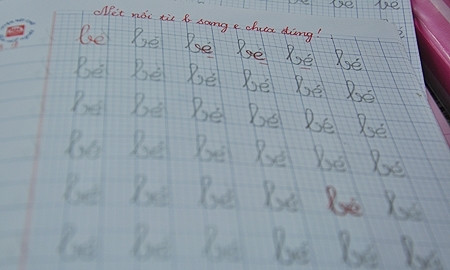 Nét nối từ b sang e chưa đúng!
bé bé bé bé bé bé
bé bé bé bé bé bé
bé bé bé bé bé bé
bé bé bé bé bé bé
bé bé bé bé bé bé
bé bé bé bé bé bé